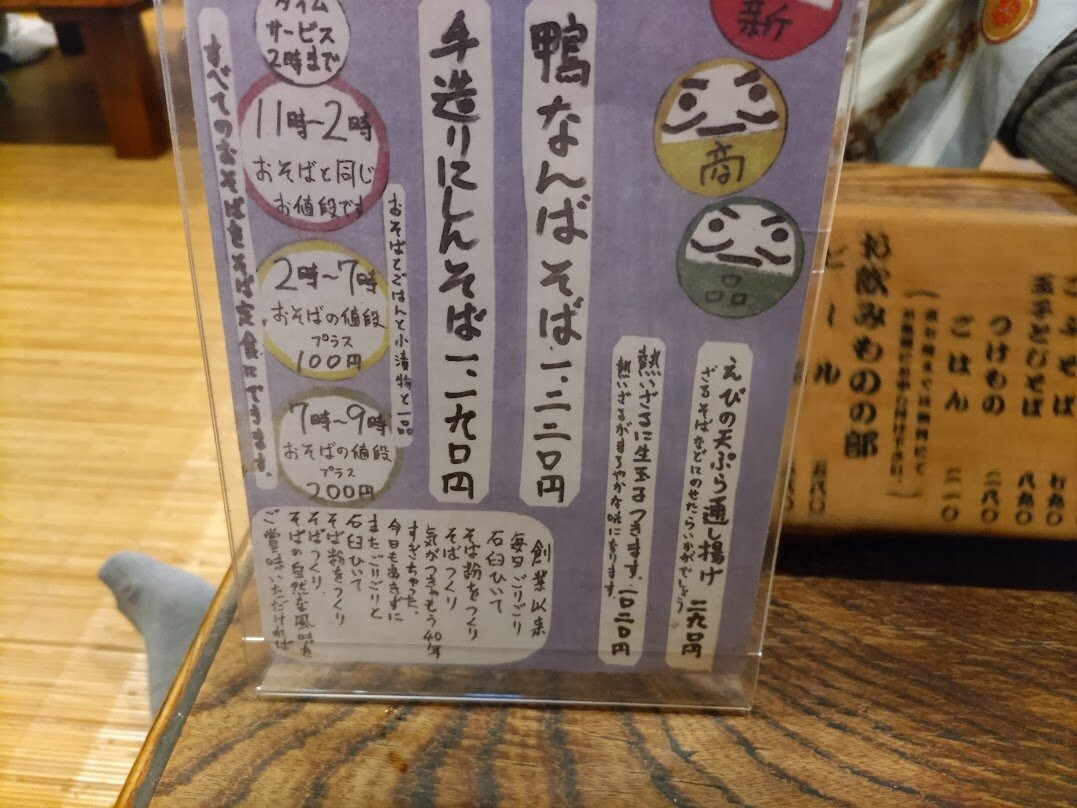 新
商
品
鴨なんばそば一、三二〇円
手造りにしんそば一、一九〇円
えびの天ぷら通し揚げ 二九〇円
ざるそばなどにのせたらいかがでしょう
熱いざるに生玉子つきます。一〇二〇円
熱いざるがまろやかな味になります。
タイム
サービス
2時まで
11時~2時
おそばと同じ
お値段です
2時~7時
おそばの値段
プラス
100円
7時~9時
おそばの値段
プラス
200円
おそばとごはんと小漬物と一品
すべてのおそばをそば定食にできます。
創業以来
毎日ごりごり
石臼ひいて
そば粉をつくり
そばつくり
気がつきゃもう40年
すぎちゃった。
今日もあきずに
またごりごりと
石臼ひいて
そば粉をつくり
そばつくり
そばの自然な風味を
ご賞味いただければ
玉子とじそば 八九〇
つけもの 二八〇
ごはん 二一〇
お飲みものの部
ビール